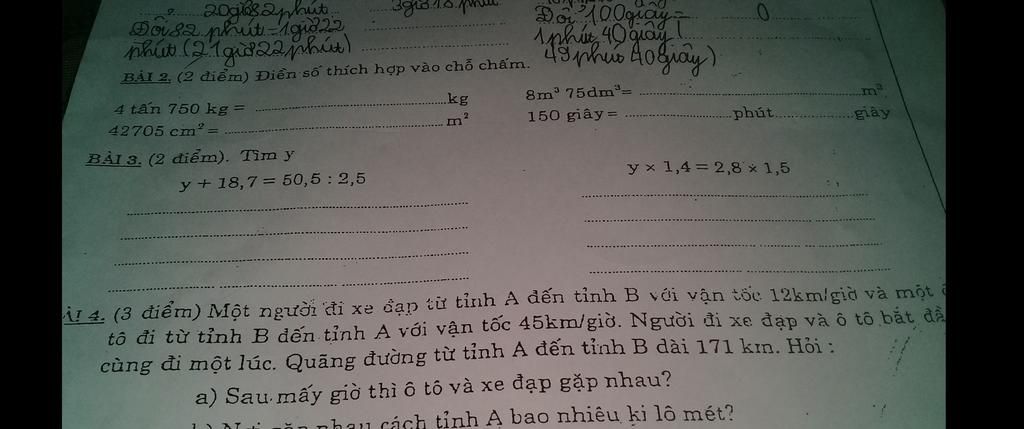 20giờ82phút 3giờ18 phút
Đổi 100giây= 0
Đổi 82 phút=1giờ22
1phút 40giây (
phút (21giờ22phút)
49phút 40giây)
BÀI 2. (2 điểm) Điền số thích hợp vào chỗ chấm.
4 tấn 750 kg = ........ kg 8m³ 75dm³= ........ m³
42705 cm² = ........ m² 150 giây = ........ phút ........ giây
BÀI 3. (2 điểm). Tìm y
y + 18,7 = 50,5 : 2,5 y × 1,4 = 2,8 × 1,5
ÀI 4. (3 điểm) Một người đi xe đạp từ tỉnh A đến tỉnh B với vận tốc 12km/giờ và một ô
tô đi từ tỉnh B đến tỉnh A với vận tốc 45km/giờ. Người đi xe đạp và ô tô bắt đầ
cùng đi một lúc. Quãng đường từ tỉnh A đến tỉnh B dài 171 km. Hỏi :
a) Sau mấy giờ thì ô tô và xe đạp gặp nhau?
gặp nhau cách tỉnh A bao nhiêu ki lô mét?